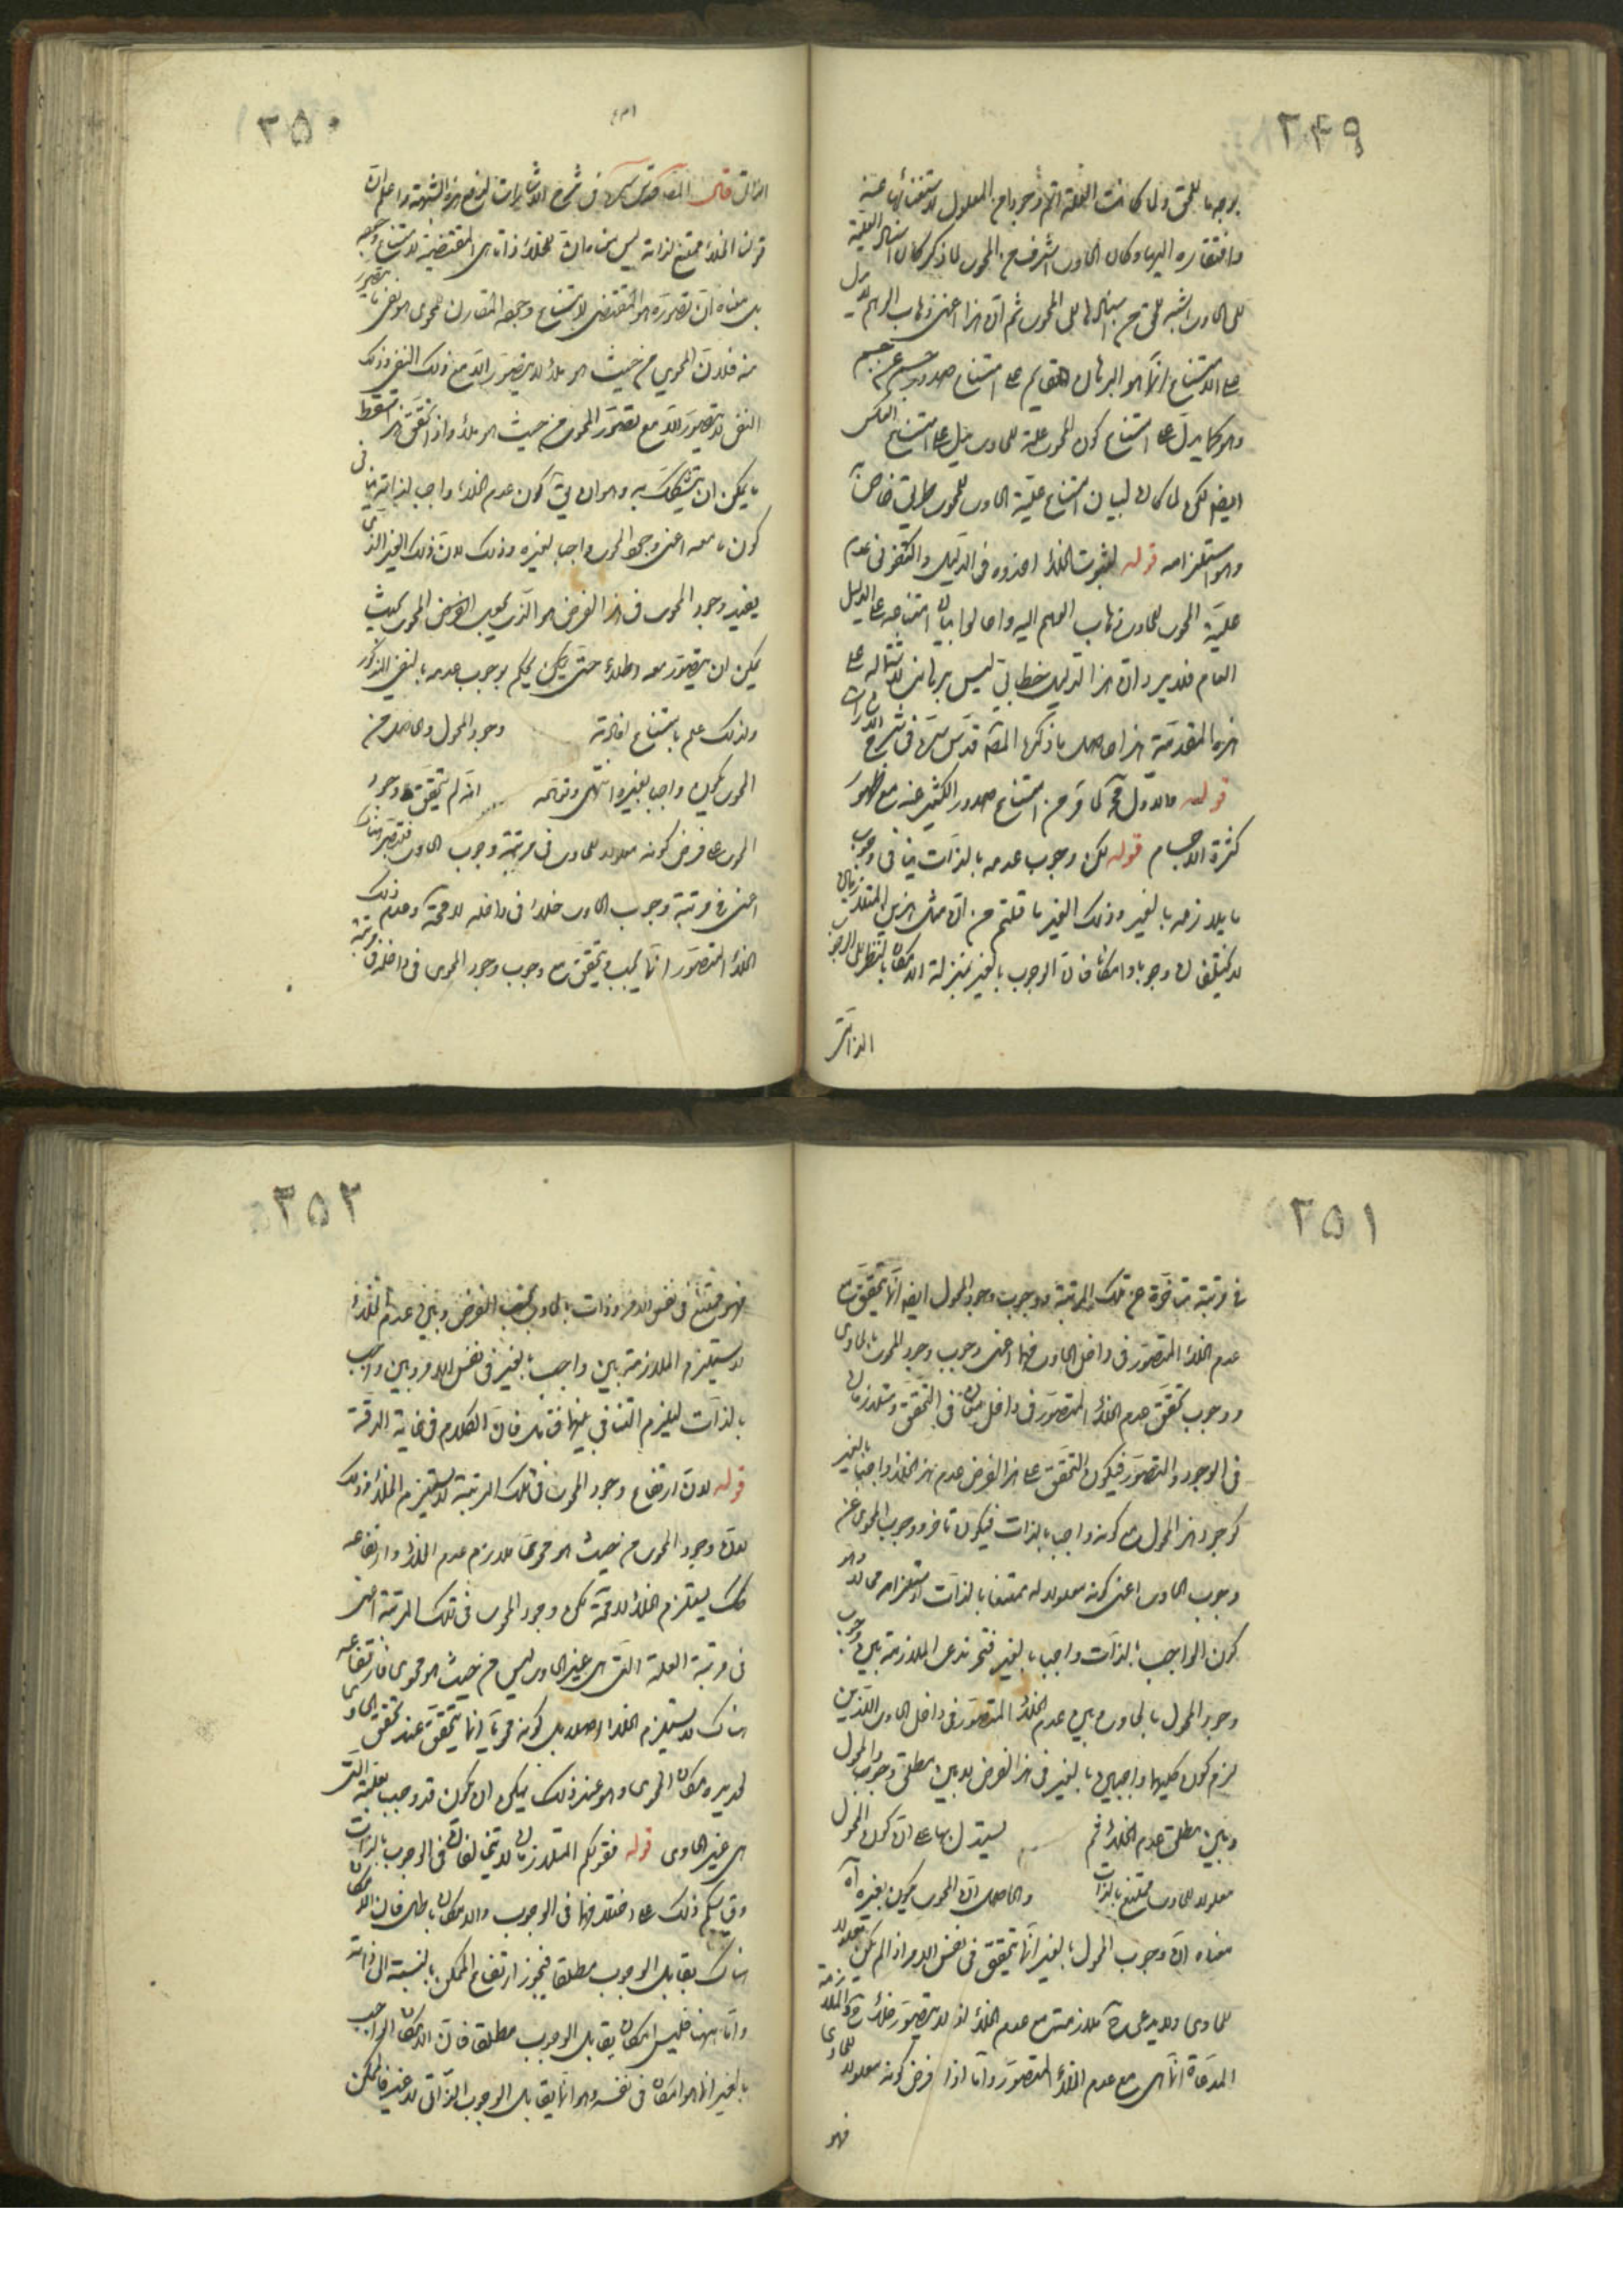 ٢٤٩
بوجه ما للحق ولما كانت العلة اتم وجودا من المعلول لاستغنائها عنه
وافتقاره اليها وكان الحاوى اشرف من المحوى لما ذكر كان اسناد العلية
للحاوى اشبه للحق من اسنادها للمحوى ثم ان هذا اعنى ذهاب الوهم لا يدل
على الامتناع انما هو البرهان القايم على امتناع صدور جسم عن جسم
وهو كما يدل على امتناع كون المحوى علة للحاوى يدل على امتناع العكس
ايضا لكن لما كان لبيان امتناع علية الحاوى للمحوى طريق خاص
وهو استلزامه قوله لثبوت الخلاء اخذوه فى الدليل واكتفوا فى عدم
علية المحوى للحاوى بذهاب الوهم اليه واحالوا بيان امتناعه على الدليل
العام فلا يرد ان هذا الدليل خطابى ليس برهانى لاشتماله على
هذه المقدمة هذا حاصل ما ذكره المصـ قدس سره فى شرح الاشارات
قوله فالاول محـ كما مر من امتناع صدور الكثير عنه مع ظهور
كثرة الاجسام قوله لكن وجوب عدمه بالذات ينافى وجوب
ما يلازمه بالغير وذلك الغير ما قلتم من ان مثل هذين المتلازمين
لا يختلفان وجوبا وامكانا فان الوجوب بالغير بمنزلة الامكان بالنظر الى الوجوب
الذاتى
٢٥٠
الذاتى قال المصـ قدس سره فى شرح الاشارات لدفع هذه الشبهة واعلم ان
قولنا الخلاء ممتنع لذاته ليس معناه ان للخلاء ذاتا هى المقتضية لامتناع وجوده
بل معناه ان تصوره هو المقتضى لامتناع وجوده المقارن للمحوى هو نفى ما يتصور
منه فلان المحوى من حيث هو ملاء لا يتصور الا مع ذلك النفى وذلك
النفى لا يتصور الا مع تصور المحوى من حيث هو ملاء واذا تحقق هذا سقط
ما يمكن ان يتشكك به وهو ان يقـ كون عدم الخلاء واجبا لذاته ينافى
كون ما معه اعنى وجود المحوى واجبا لغيره وذلك لان ذلك الغير الذى
يفيد وجود المحوى فى هذا الفرض هو الذى يجعل المحوى بحيث
يمكن ان يتصور معه خلاء حتى يمكن ان يحكم بوجوب عدمه بالنفى المذكور
ولذلك حكم بامتناع افادته وجود المحوى والحاصل من
المحوى يكون واجبا بغيره انتهى وتوهمه انه لم يتحقق وجود
المحوى على فرض كونه معلولا للحاوى فى مرتبة وجوب الحاوى فتصور هناك
اعنى فى مرتبة وجوب الحاوى خلاء فى داخله لا محة وعدم ذلك
الخلاء المتصور انما يجب ويتحقق مع وجوب وجود المحوى فى داخله فى مرتبة
٢٥١
فى مرتبة متاخرة عن تلك المرتبة ووجوب وجود المحوى ايضا انما يتحقق مع
عدم الخلاء المتصور فى داخل الحاوى فهما اعنى وجوب وجود المحوى بالحاوى
ووجوب تحقق عدم الخلاء المتصور فى داخله معان فى التحقق ومتلازمان
فى الوجود والتصور فيكون التحقق على هذا الفرض عدم هذا الخلاء واجبا بالغير
كوجود هذا المحوى مع كونه واجبا بالذات فيكون تاخر وجوب المحوى عن
وجوب الحاوى اعنى كونه معلولا له ممتنعا بالذات لاستلزامه محالا وهو
كون الواجب بالذات واجبا بالغير فنحن ندعى الملازمة بين وجوب
وجود المحوى بالحاوى وبين عدم الخلاء المتصور فى داخل الحاوى اللذين
لزم كون كليهما واجبين بالغير فى هذا الفرض لا بين مطلق وجوب المحوى
وبين مطلق عدم الخلاء ثم يستدل بها على ان كون المحوى
معلولا للحاوى ممتنع بالذات والحاصل ان المحوى يكون بغيره آه
معناه ان وجوب المحوى بالغير انما يتحقق فى نفس الامر اذا لم يكن معلولا
للحاوى ولا يدعى حـ ملازمته مع عدم الخلاء اذ لا يتصور خلاء حـ والملازمة
المدعاة انما هى مع عدم الخلاء المتصور واما اذا فرض كونه معلولا للحاوى
فهو
٢٥٢
فهو ممتنع فى نفس الامر وذات بالحاوى بحسب الفرض وبين عدم الخلاء
لا يستلزم الملازمة بين واجب بالغير فى نفس الامر وبين واجب
بالذات ليلزم التنافى بينهما فتامل فان الكلام فى غاية الدقة
قوله لان ارتفاع وجود المحوى فى تلك المرتبة لا يستلزم الخلاء وذلك
لان وجود المحوى من حيث هو محوى ملازم عدم الخلاء وارتفاعه
كك يستلزم الخلاء لا محة لكن وجود المحوى فى تلك المرتبة اعنى
فى مرتبة العلة التى هى غير الحاوى ليس من حيث هو محوى فارتفاعه
هناك لا يستلزم الخلاء اصلا بل كونه محويا انما يتحقق عند تحقق الحاوى
لتحديده مكان المحوى وهو عند ذلك يمكن ان يكون قد وجب بعلته التى
هى غير الحاوى قوله فقولكم المتلازمان لا يتخالفان فى الوجوب بالذات
وقياسكم ذلك على اختلافهما فى الوجوب والامكان باطل فان الامكان
هناك يقابل الوجوب مطلقا فيجوز ارتفاع الممكن بالنسبة الى ذاته
واما ههنا فليس امكان يقابل الوجوب مطلقا فان الامكان الواجب
بالغير انما هو امكان فى نفسه وهو انما يقابل الوجوب الذاتى لا غير فالممكن